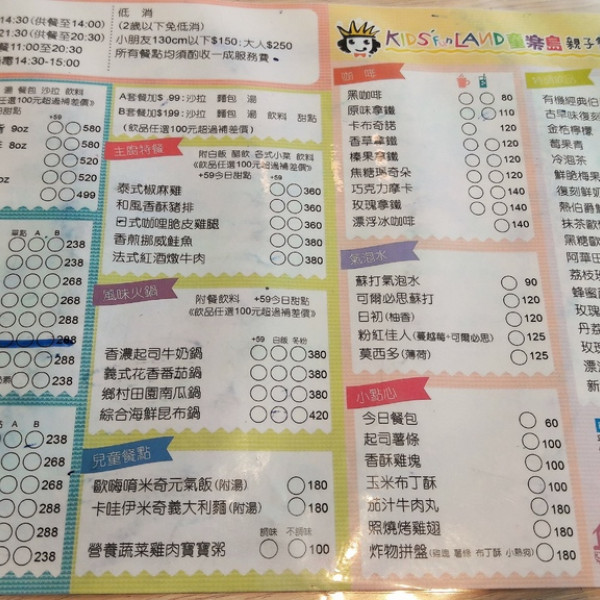 14:30(供餐至14:00)
21:30(供餐至20:30)
餐11:00至20:30
應14:30-15:00
低 消
(2歲以下免低消)
小朋友130cm以下$150;大人$250
所有餐點均須酌收一成服務費
KIDS' Fun LAND 童樂島 親子
餐包 沙拉 飲料
任選100元超過補差價》
+59
9oz 580
8oz 580
520
520
499
A套餐加$ 99:沙拉 麵包 湯
B套餐加$199:沙拉 麵包 湯 飲料 甜點
(飲品任選100元超過補差價)
主廚特餐
附白飯 關飲 各式小菜 飲料
《飲品任選100元超過補差價》
+59今日甜點
+59
泰式椒麻雞 360
和風香酥豬排 360
日式咖哩脆皮雞腿 360
香煎挪威鮭魚 360
法式紅酒燉牛肉 360
單點 A B
238
268
268
268
288
288
288
風味火鍋
附餐飲料 +59今日甜點
《飲品任選100元超過補差價》
+59 白飯 冬粉
香濃起司牛奶鍋 380
義式花香番茄鍋 380
鄉村田園南瓜鍋 380
綜合海鮮昆布鍋 420
A B
238
238
268
268
288
288
兒童餐點
歐嗨唷米奇元氣飯(附湯) 180
卡哇伊米奇義大利麵(附湯) 180
調味 不調味
營養蔬菜雞肉寶寶粥 100
咖 啡
黑咖啡 80
原味拿鐵 110
卡布奇諾 120
香草拿鐵 120
榛果拿鐵 120
焦糖瑞奇朵 120
巧克力摩卡 140
玫瑰拿鐵 140
漂浮冰咖啡 140
氣泡水
蘇打氣泡水 90
可爾必思蘇打 120
日初(柚香) 120
粉紅佳人(蔓越莓+可爾必思) 125
莫西多(薄荷) 125
小點心
今日餐包 60
起司薯條 100
香酥雞塊 100
玉米布丁酥 100
茄汁牛肉丸 180
照燒烤雞翅 180
炸物拼盤(雞塊 薯條 布丁酥 小熱狗) 180
有機經典伯
古早味復刻
金桔檸檬
莓果青
冷泡茶
鮮脆梅果
復刻鮮奶
熱伯爵
抹茶歐
黑糖歐
阿華田
荔枝玫
蜂蜜
玫瑰
丹荔
玫瑰
漂
新